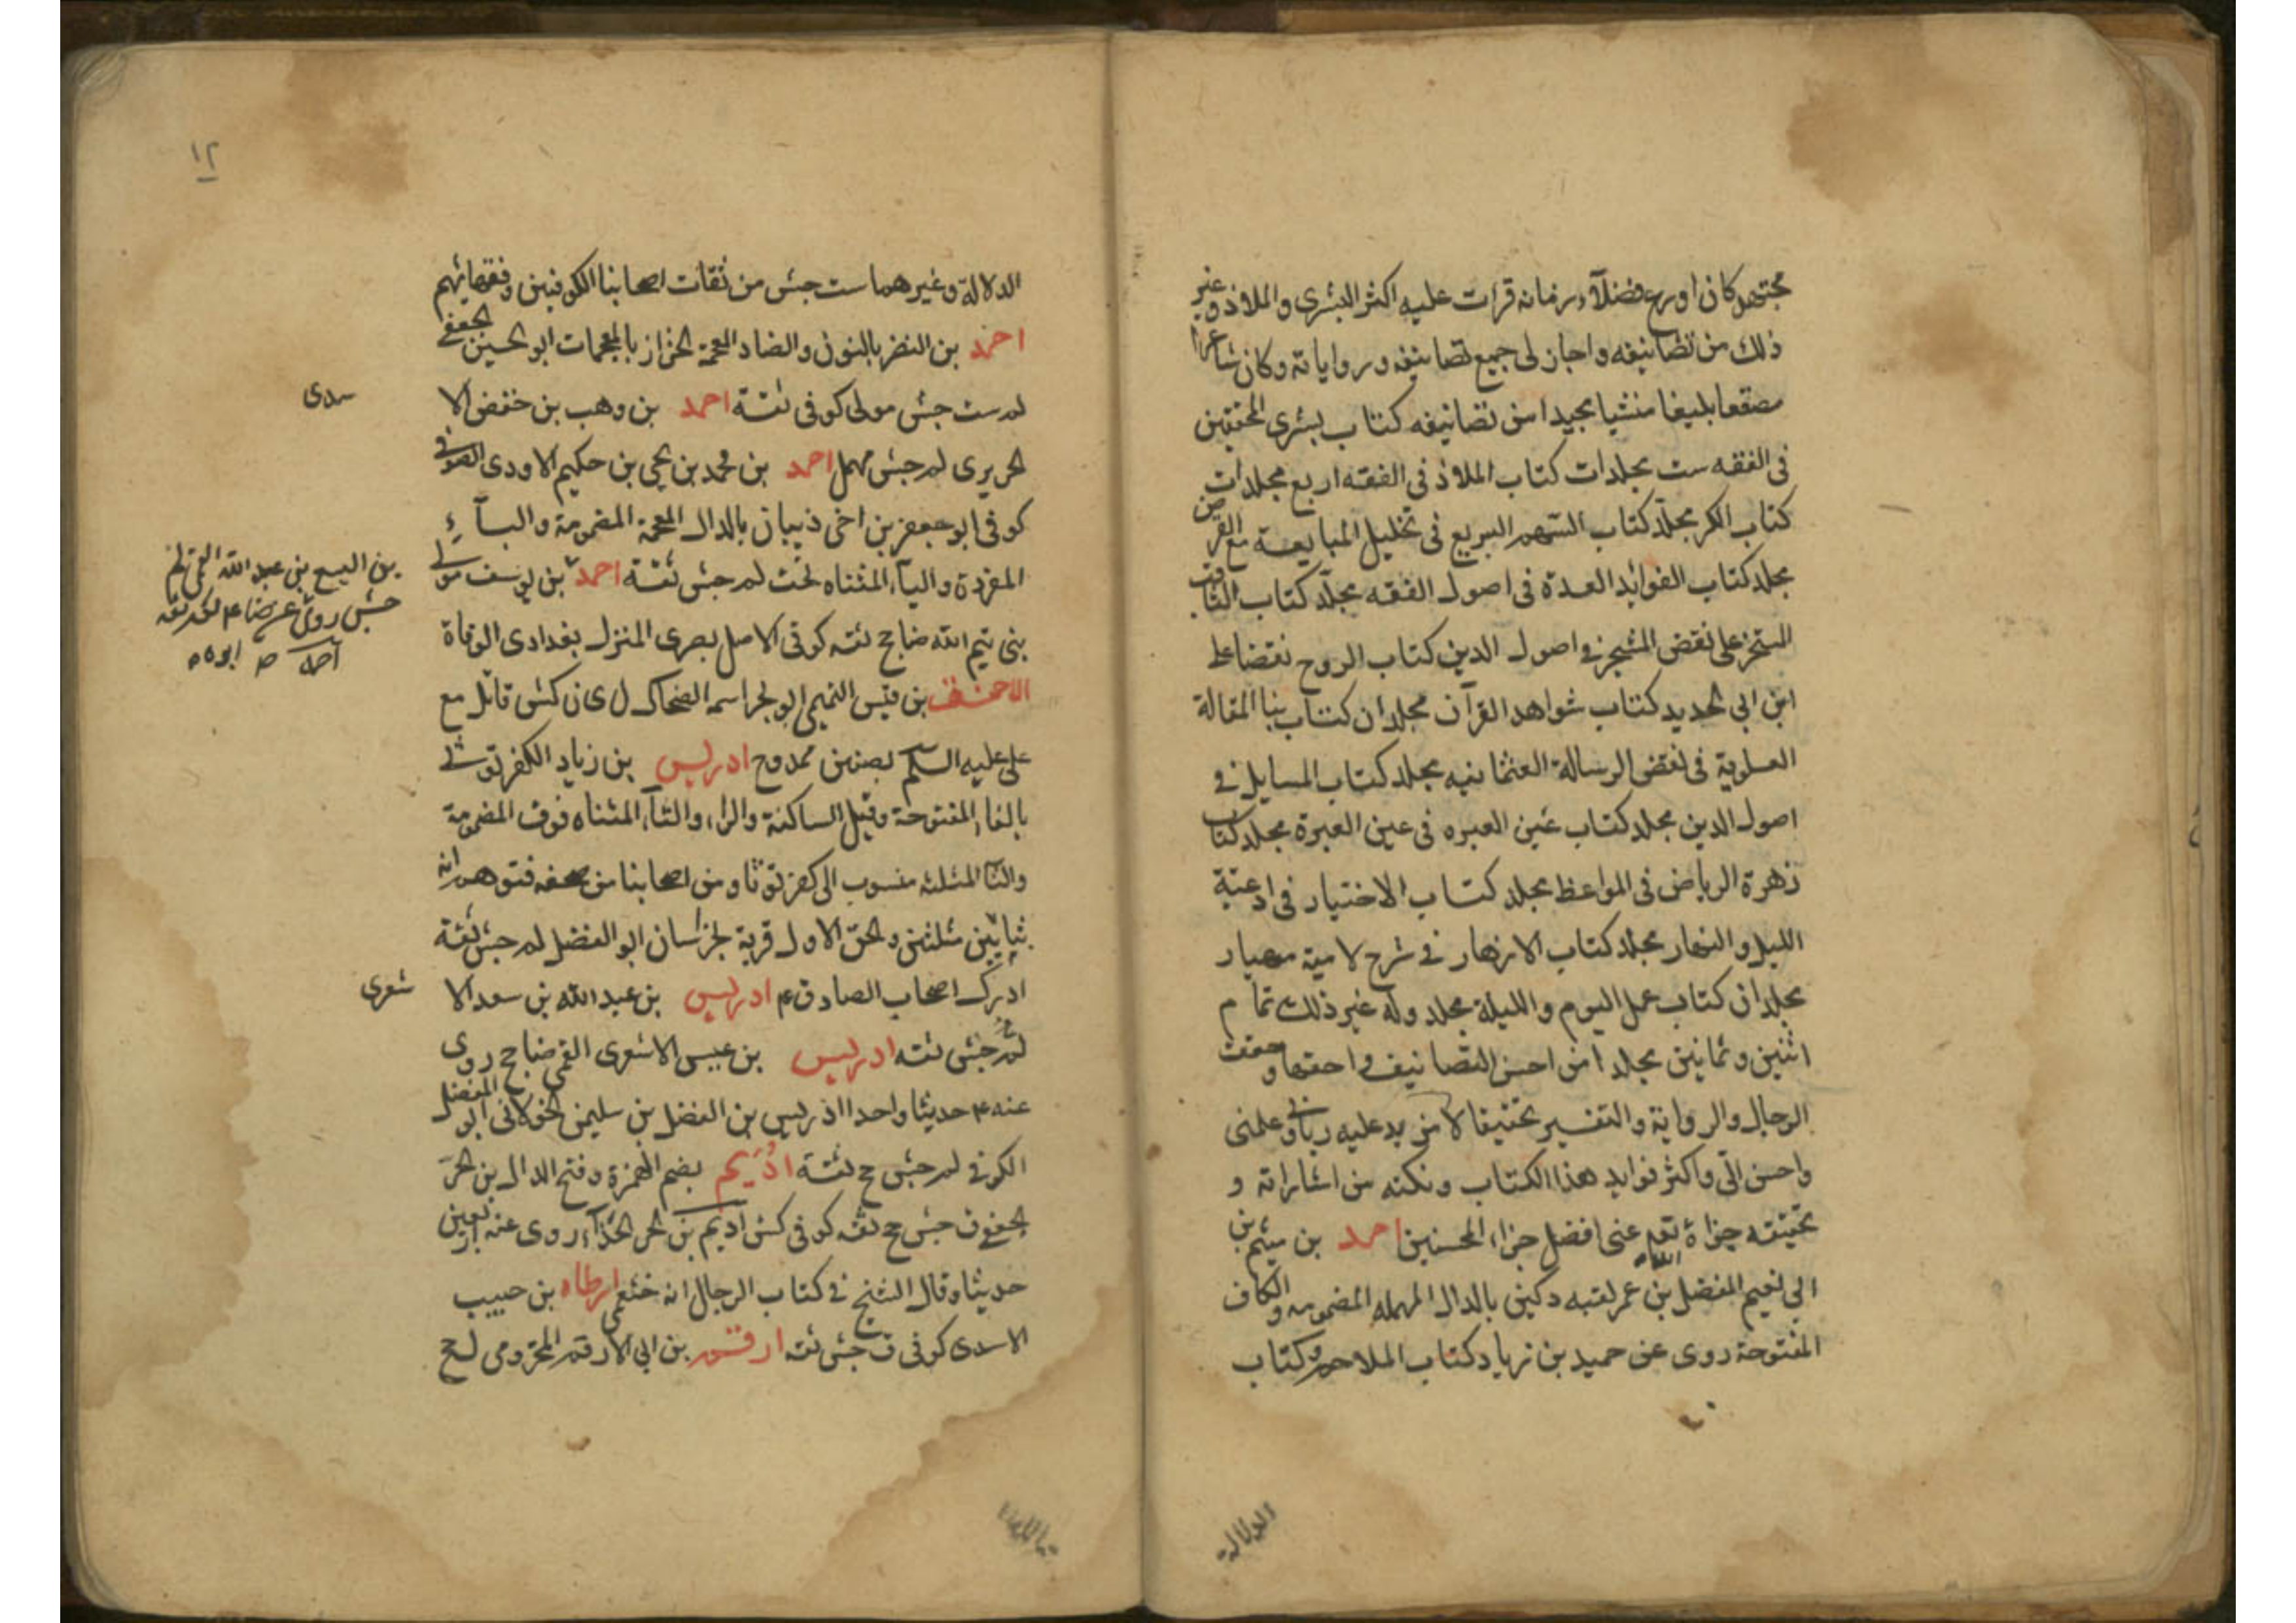 مجتهد كان اورع فضلآء زمانه قرات عليه اكثر البشرى والملاذ وغير
ذلك من تصانيفه واجاز لى جميع تصانيفه ورواياته وكان شاعرا
مصقعا بليغا منشيا مجيدا من تصانيفه كتاب بشرى المحققين
فى الفقه ست مجلدات كتاب الملاذ فى الفقه اربع مجلدات
كتاب الكر مجلد كتاب السهم السريع فى تحليل المبايعة مع القرض
مجلد كتاب الفوايد العدة فى اصول الفقه مجلد كتاب الثاقب
المسخر على نقض المشجر فى اصول الدين كتاب الروح نقضا على
ابن ابى الحديد كتاب شواهد القرآن مجلدان كتاب بنا المقالة
العلوية فى نقض الرسالة العثمانيه مجلد كتاب المسايل فى
اصول الدين مجلد كتاب عين العبره فى عين العبرة مجلد كتاب
زهرة الرياض فى المواعظ مجلد كتاب الاختيار فى ادعية
الليل والنهار مجلد كتاب الازهار فى شرح لامية مهيار
مجلدان كتاب عمل اليوم والليلة مجلد وله غير ذلك تمام
اثنين وثمانين مجلدا من احسن التصانيف واحقها وحقق
الرجال والرواية والتفسير تحقيقا لا مزيد عليه ربانى وعلمنى
واحسن الىّ واكثر فوايد هذا الكتاب ونكته من اشاراته و
تحقيقه جزاه الله تع عنى افضل جزاء المحسنين احمد بن ميثم بن
ابى نعيم المفضل بن عمر لقبه دكين بالدال المهمله المضمومه والكاف
المفتوحة روى عن حميد بن زياد كتاب الملاحم وكتاب
الدلالة
١٢
الدلالة وغيرهما ست جش من ثقات اصحابنا الكوفيين وفقهائهم
احمد بن النضر بالنون والضاد المعجمة الخزاز بالمعجمات ابو الحسين الجعفى
لم ست جش مولى كوفى ثقة احمد بن وهب بن حفص الا سدى
الحريرى لم جش مهمل احمد بن محمد بن يحيى بن حكيم الاودى الصوفى
كوفى ابو جعفر بن اخى ذبيان بالذال المعجمة المضمومة والبآء
المفردة واليآء المثناه تحت لم جش ثقة احمد بن يوسف مولى
بنى تيم الله ضا جخ ثقه كوفى الاصل بصرى المنزل بغدادى الوفاة
الاحنف بن قيس التميمى ابو بحر اسمه الضحاك ل ى ن كش قاتل مع
على عليه السلم بصفين ممدوح ادريس بن زياد الكفرتوثى
بالفاء المفتوحة وقيل الساكنة والراء والتآء المثناه فوق المضمومة
والثآ المثلثه منسوب الى كفرتوثا ومن اصحابنا من صحفه فتوهم انه
بثايين مثلثين والحق الاول قرية بخراسان ابو الفضل لم جش ثقة
ادرك اصحاب الصادق ع ادريس بن عبد الله بن سعد الا شعرى
لم جش ثقه ادريس بن عيسى الاشعرى القمى ضا جخ روى
عنه ع حديثا واحدا ادريس بن الفضل بن سليمن الخولانى ابو الفضل
الكوفى لم جش جخ ثقة اديم بضم الهمزة وفتح الدال بن الحرّ
الجعفى ق جش جخ ثقه كوفى كش اديم بن الحر الحذآء روى عنه اربعين
حديثا وقال الشيخ فى كتاب الرجال انه خثعمى ارطاه بن حبيب
الاسدى كوفى ق جش ثقه ارقم بن ابى الارقم المخزومى ل جخ
بن اليسع بن عبد الله القمى لم